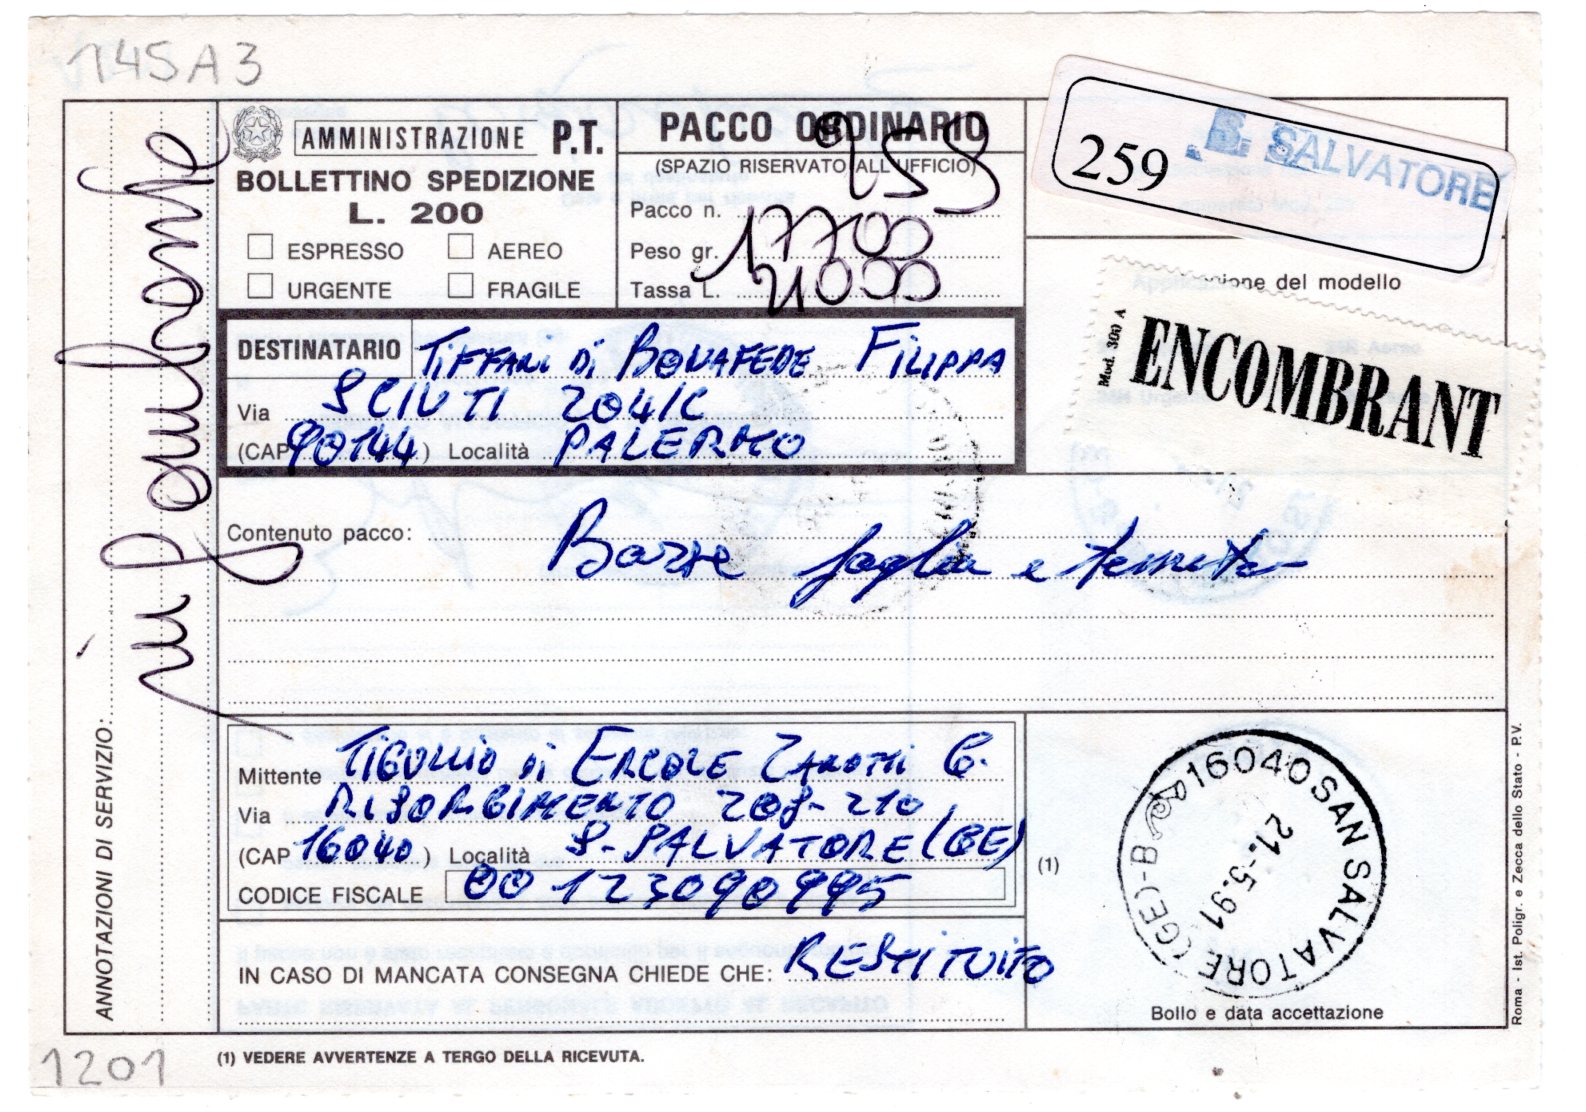 145A3
AMMINISTRAZIONE P.T.
BOLLETTINO SPEDIZIONE
L. 200
ESPRESSO AEREO
URGENTE FRAGILE
PACCO ORDINARIO
(SPAZIO RISERVATO ALL'UFFICIO)
Pacco n. 259
Peso gr. 17700
Tassa L. 21000
259 S. SALVATORE
Applicazione del modello
Mod. 300 A
ENCOMBRANT
DESTINATARIO Tiffani di Bonafede Filippa
Via SCIUTI 204/C
(CAP 90144) Località PALERMO
Contenuto pacco: Borse foglia e
Mittente Tigullio di Ercole Zanotti C.
Via RISORGIMENTO 208-210
(CAP 16040) Località S. SALVATORE (GE)
CODICE FISCALE 00 123090995
IN CASO DI MANCATA CONSEGNA CHIEDE CHE: RESTITUITO
(1)
16040 SAN SALVATORE (GE)-B
21.-5.91
Bollo e data accettazione
ANNOTAZIONI DI SERVIZIO:
Roma - Ist. Poligr. e Zecca dello Stato - P.V.
(1) VEDERE AVVERTENZE A TERGO DELLA RICEVUTA.
1201